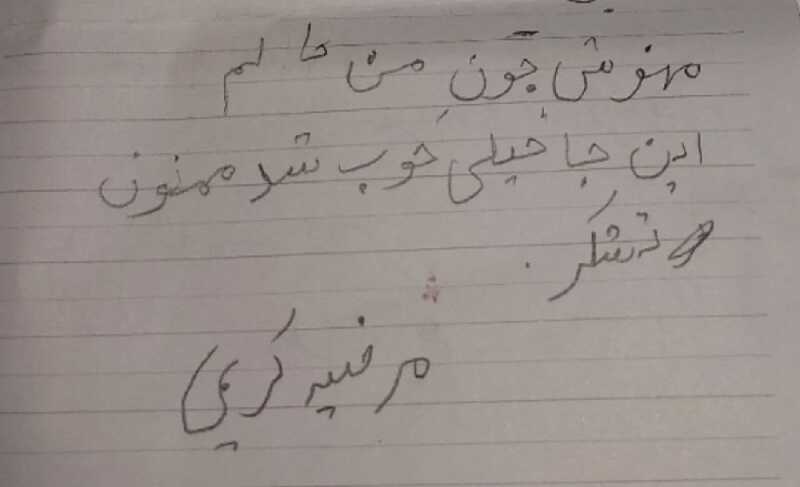 مهنوش جون من حالم
این جا خیلی خوب شد ممنون
و تشکر.
مرضیه کریمی